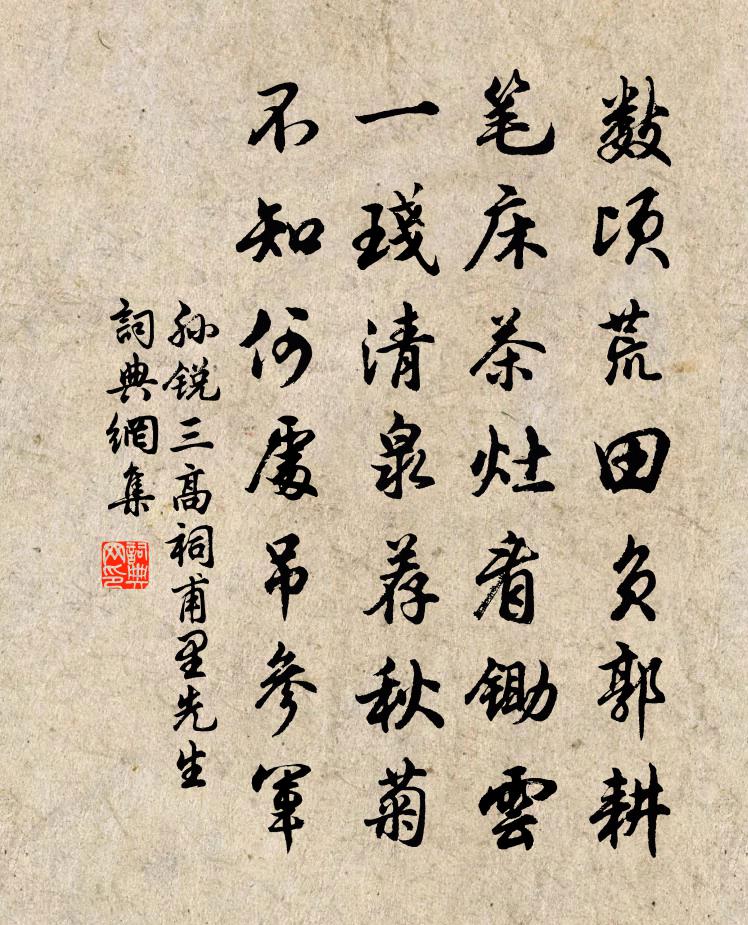 数顷荒田负郭耕
笔床茶灶看锄雲
一琖清泉荐秋菊
不知何處吊參軍
孙锐三高祠甫里先生
詞典網集
詞典網印